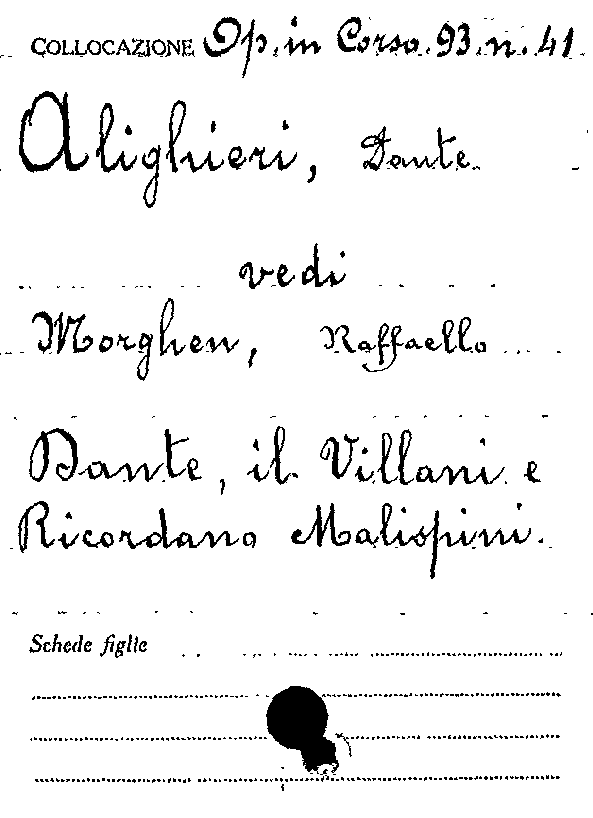 COLLOCAZIONE Op. in Corso. 93. n. 41
Alighieri, Dante
vedi
Morghen, Raffaello
Dante, il Villani e
Ricordano Malispini.
Schede figlie